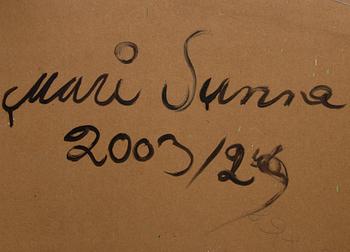 Mari Sunna
2003/24